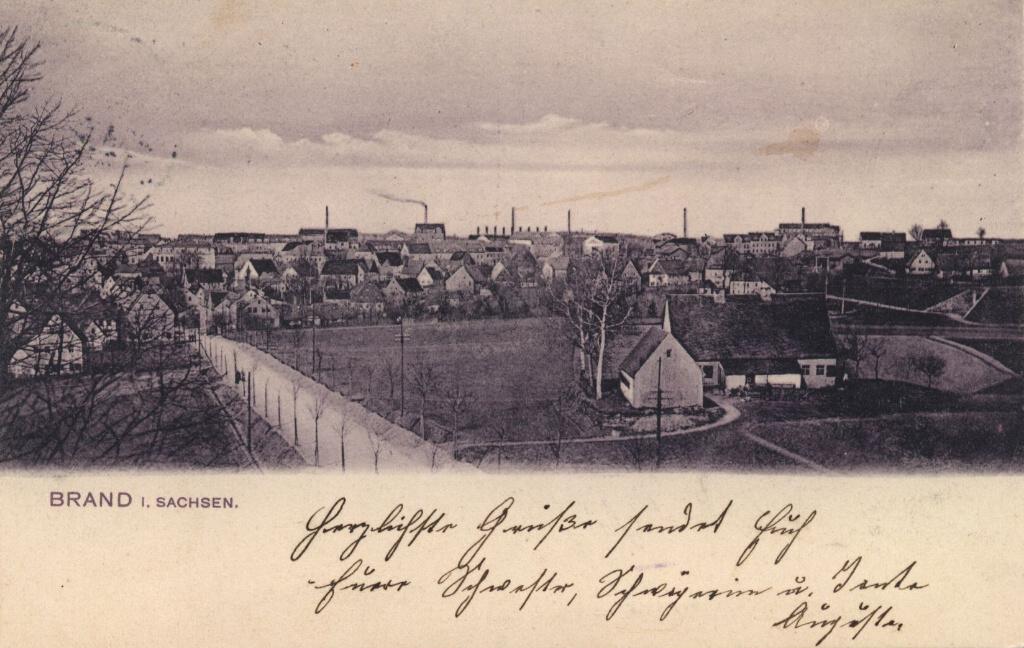 BRAND I. SACHSEN.
Herzlichste Grüße sendet Euch
Euere Schwester, Schwägerin u. Tante
Auguste.